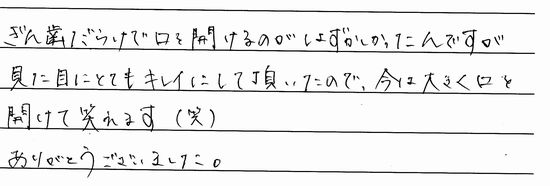 ぎん歯だらけで口を開けるのがはずかしかったんですが
見た目にとてもキレイにして頂いたので、今は大きく口を
開けて笑えます（笑）
ありがとうございました。